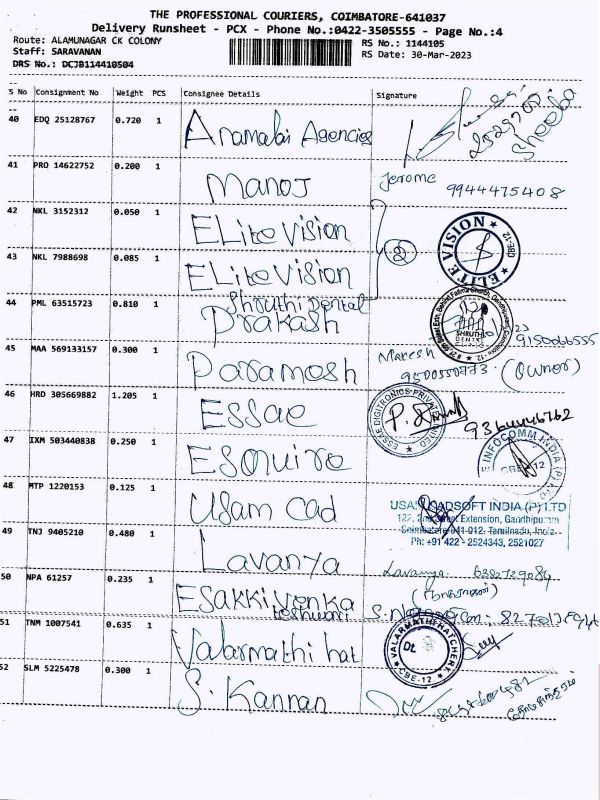 THE PROFESSIONAL COURIERS, COIMBATORE-641037
Delivery Runsheet - PCX - Phone No.:0422-3505555 - Page No.:4
Route: ALAMUNAGAR CK COLONY RS No.: 1144105
Staff: SARAVANAN RS Date: 30-Mar-2023
DRS No.: DCJB114410504
S No Consignment No Weight PCS Consignee Details Signature
40 EDQ 25128767 0.720 1 Anamalai Agencies Sheeba
41 PRO 14622752 0.200 1 Manoj Jerome 9944475408
42 NKL 3152312 0.050 1 Elite Vision
43 NKL 7988698 0.085 1 Elite Vision 2 ELITE VISION CBE-12
Shruthi Dental
44 PML 63515723 0.810 1 Prakash SHRUTHI DENTAL 9150066555
45 MAA 569133157 0.300 1 Paramesh Maresh 9500550773 (Owner)
46 HRD 305669882 1.205 1 Essae ESSAE DIGITRONICS PRIVATE LIMITED
47 IXM 503440838 0.250 1 Esquire INFOCOMM INDIA (P) CBE-12
48 MTP 1220153 0.125 1 Usam Cad USAM CADSOFT INDIA (P) LTD
122, 2nd Street Extension, Gandhipuram
Coimbatore-641 012. Tamilnadu, India
Ph: +91 422 - 2524343, 2521027
49 TNJ 9405210 0.480 1 Lavanya Lavanya 6382729084
50 NPA 61257 0.235 1 Esakkivenka
teshwari
51 TNM 1007541 0.635 1 Valarmathi hat VALARMATHI HATCHERY CBE-12
52 SLM 5225478 0.300 1 S. Kannan